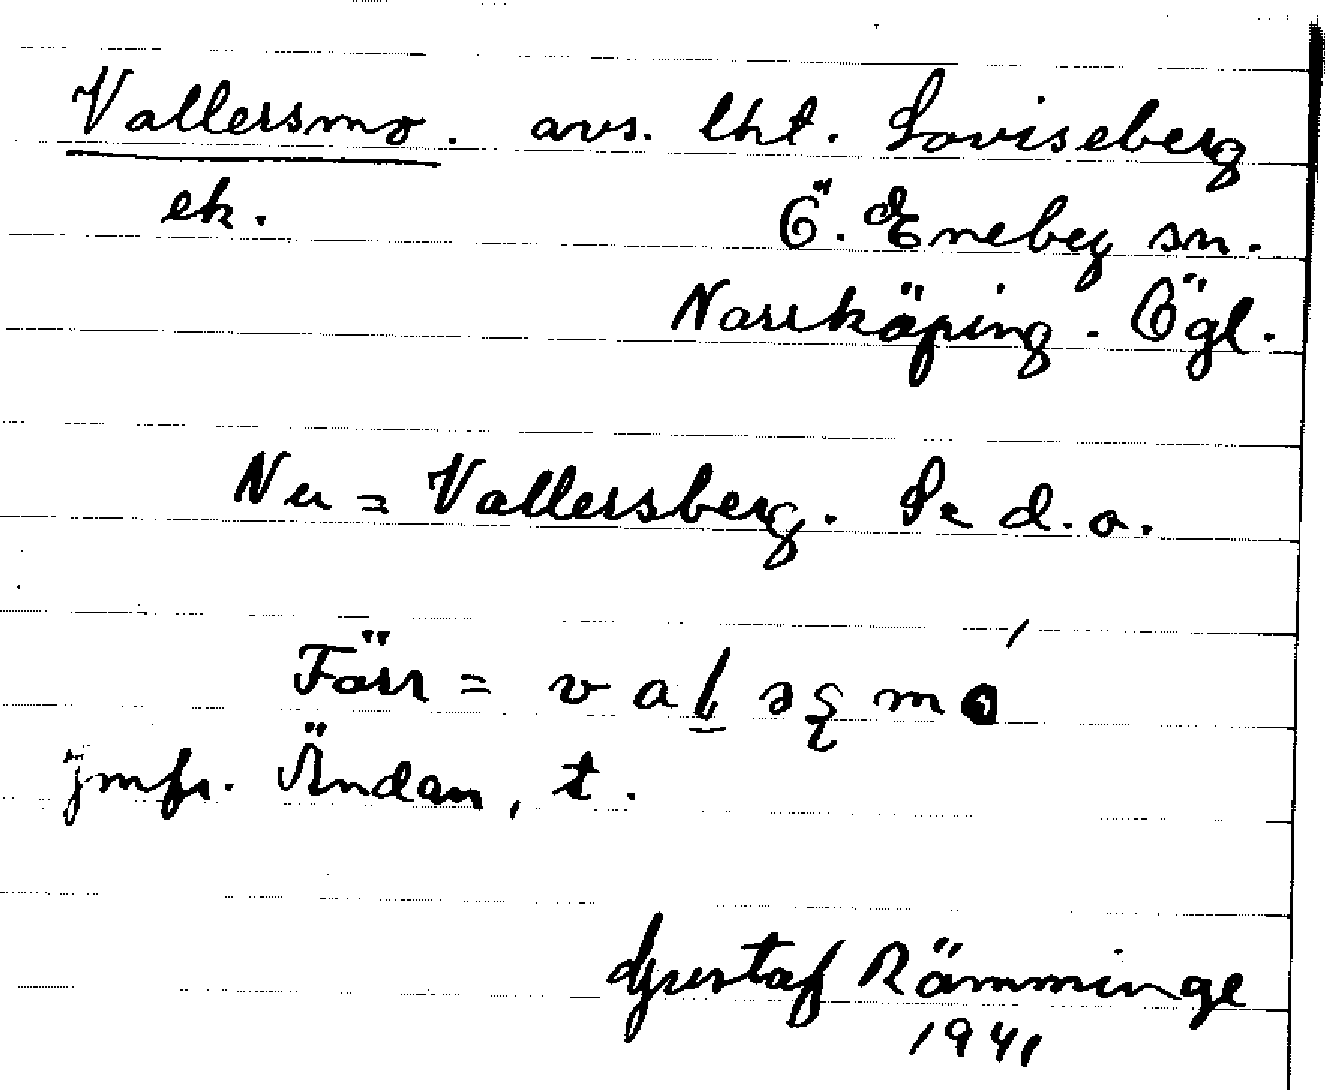 Vallersmo. avs. lht. Loviseberg
ek. Ö. Eneby sn.
Norrköping. Ögl.
Nu = Vallersberg. Se d.o.
Förr = v a l ə ş m
jmfr. Ändan, t.
Gustaf Rämminge
1941